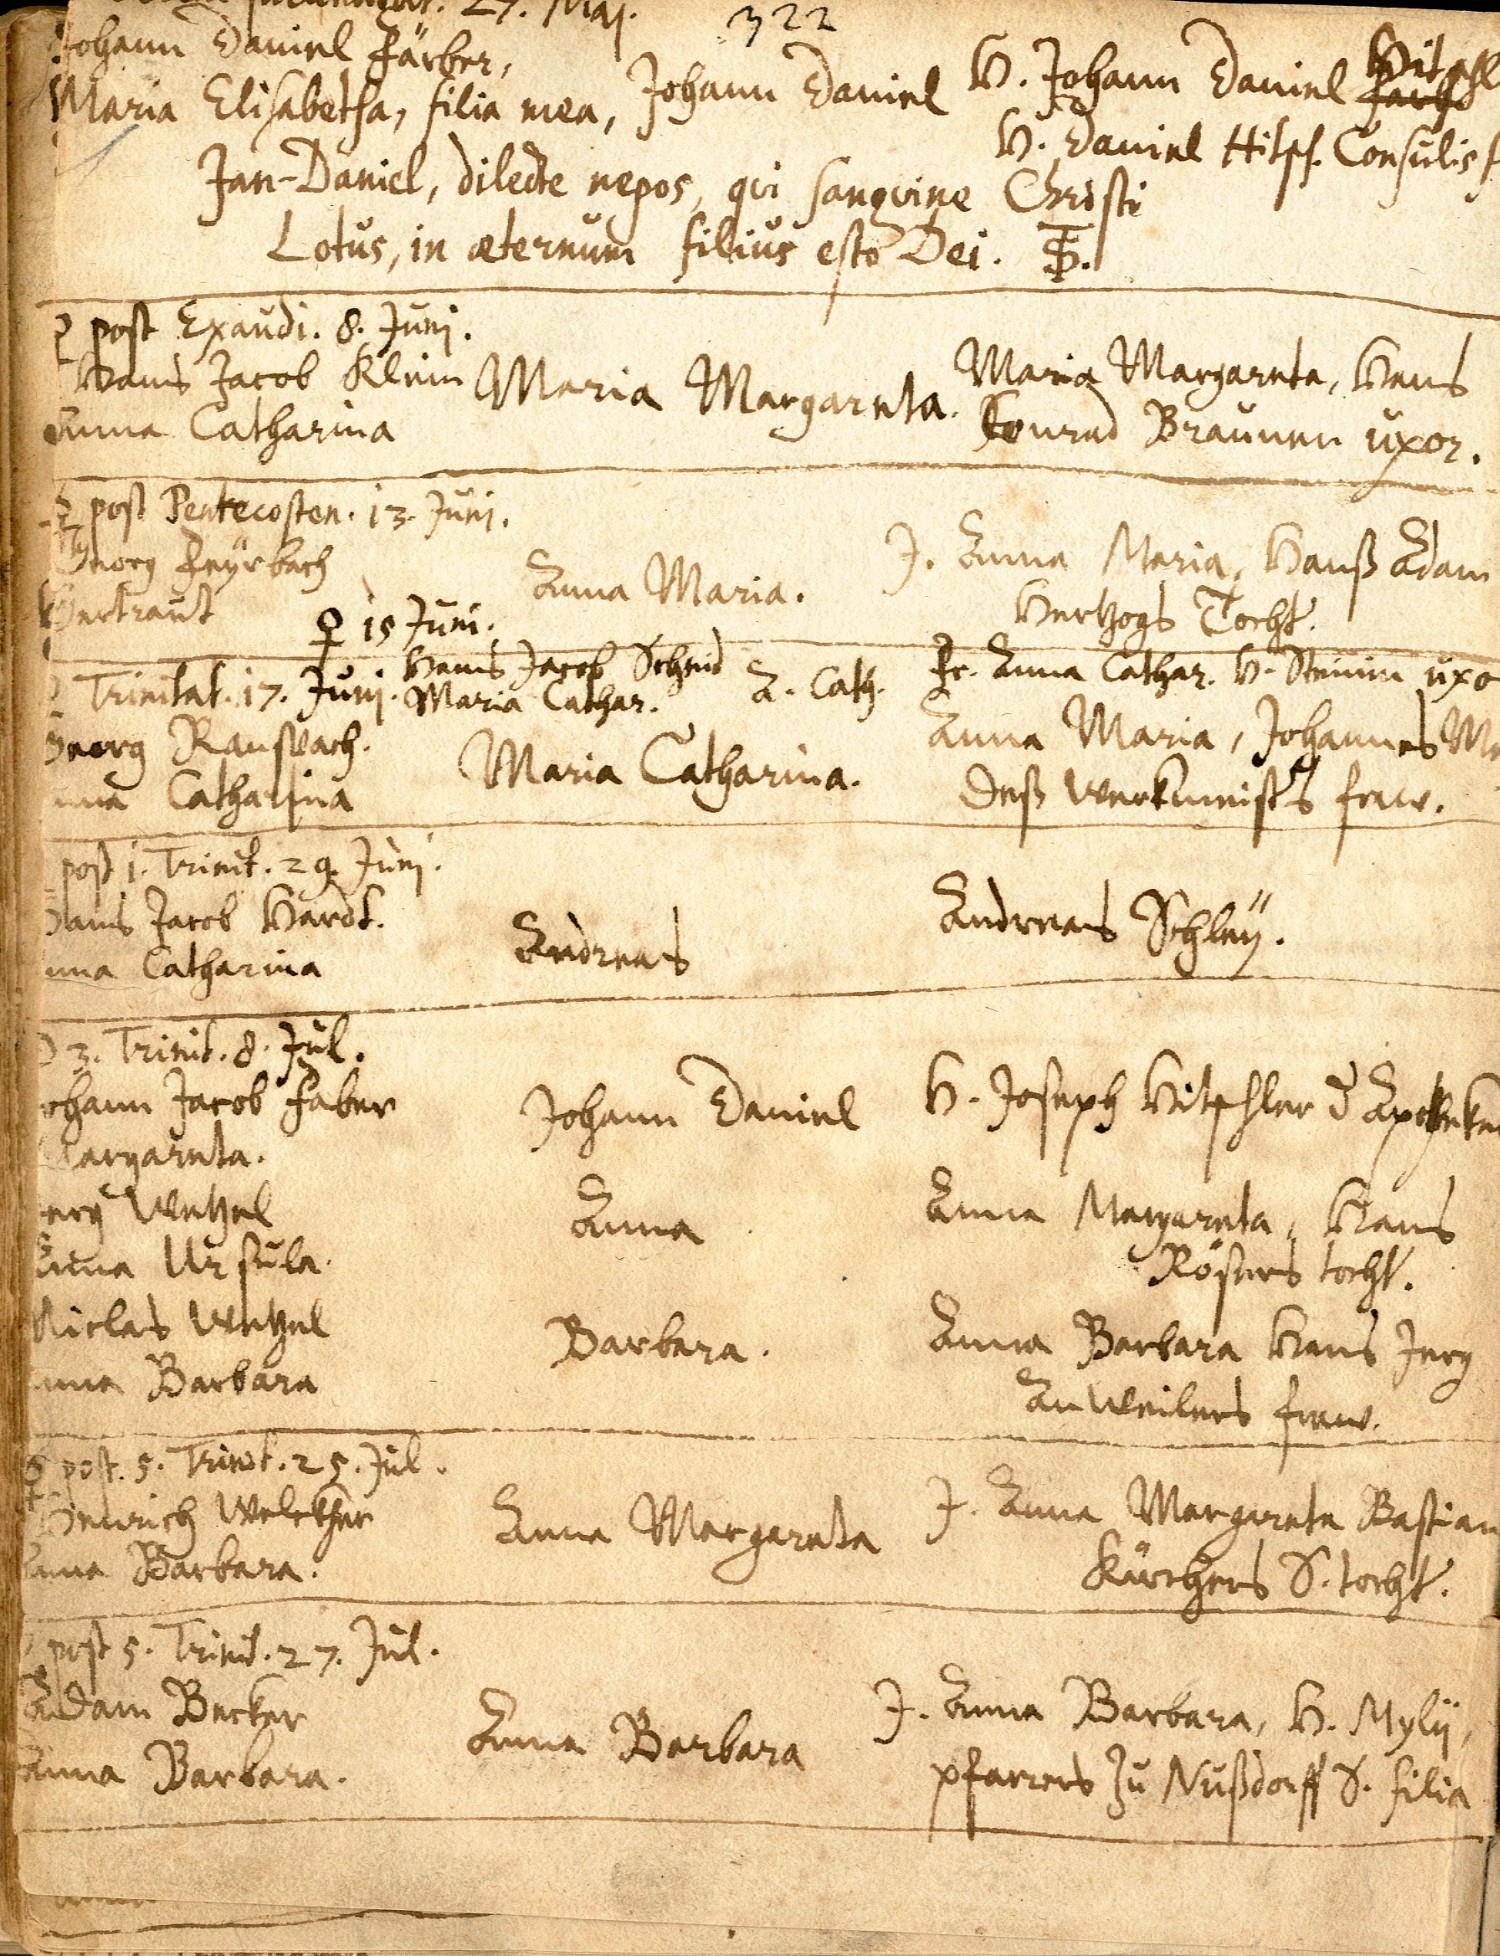 27. Maj.
322
Johann Daniel Färber,
Maria Elisabetha, filia mea,
Johann Daniel
H. Johann Daniel Hitschl
H. Daniel Hitsch. Consulis f
Jan-Daniel, dilecte nepos, qui sangvine Christi
Lotus, in æternum filius esto Dei.
♀ post Exaudi. 8. Junj.
Hans Jacob Klein
Anna Catharina
Maria Margareta.
Maria Margareta, Hans
Conrad Braunen uxor.
post Pentecosten. 13. Junj.
Georg Feyrbach
Gertraut
Anna Maria.
J. Anna Maria, Hanß Adam
Hertzogs Tocht.
♀ 15 Juni.
Hans Jacob Scheid
Maria Cathar.
A. Cath.
Fr. Anna Cathar. H. Steinin uxo
Trinitat. 17. Junj.
Georg Rauswach.
nna Catharina
Maria Catharina.
Anna Maria, Johannes Me
deß Werckmeisters fraw.
post 1. Trinit. 29. Junj.
Hans Jacob Hardt.
nna Catharina
Andreas
Andreas Schley.
3. Trinit. 8. Jul.
ohann Jacob Faber
Margareta.
Johann Daniel
H. Joseph Hitschler d Apotheker
erg Wetzel
Anna Ursula.
Anna
Anna Margareta, Hans
Rösers tocht.
Niclas Wetzel
nna Barbara
Barbara.
Anna Barbara Hans Jerg
Anweilers fraw.
post. 5. Trinit. 25. Jul.
Henrich Welcker
Anna Barbara.
Anna Margareta
J. Anna Margareta Bastian
Kürchers S. tocht.
post 5. Trinit. 27. Jul.
Adam Becker
Anna Barbara.
Anna Barbara
J. Anna Barbara, H. Mylij,
pfarrers zu Nußdorff S. filia